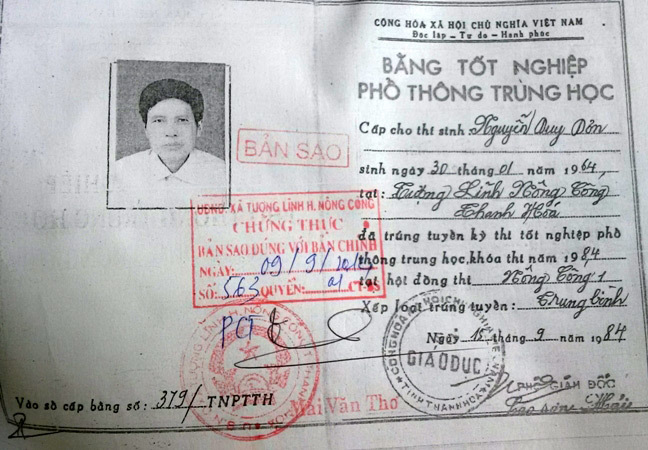 CỘNG HÒA XÃ HỘI CHỦ NGHĨA VIỆT NAM
Độc lập - Tự do - Hạnh phúc
BẰNG TỐT NGHIỆP
PHỔ THÔNG TRUNG HỌC
Cấp cho thí sinh Nguyễn Duy Đôn
sinh ngày 30 tháng 01 năm 1964,
tại: Tượng Lĩnh Nông Cống
Thanh Hóa
đã trúng tuyển kỳ thi tốt nghiệp phổ
thông trung học, khóa thi năm 1984
tại hội đồng thi Nông Cống 1
Xếp loại trúng tuyển: Trung bình
Ngày 15 tháng 9 năm 1984
GIÁO DỤC
PHÓ GIÁM ĐỐC
BẢN SAO
UBND. XÃ TƯỢNG LĨNH H. NÔNG CỐNG
CHỨNG THỰC
BẢN SAO ĐÚNG VỚI BẢN CHÍNH
NGÀY: 09/9/
SỐ: 563 QUYỂN: 01
PCT
Mai Văn Thơ
Vào sổ cấp bằng số: 379/ TNPTTH